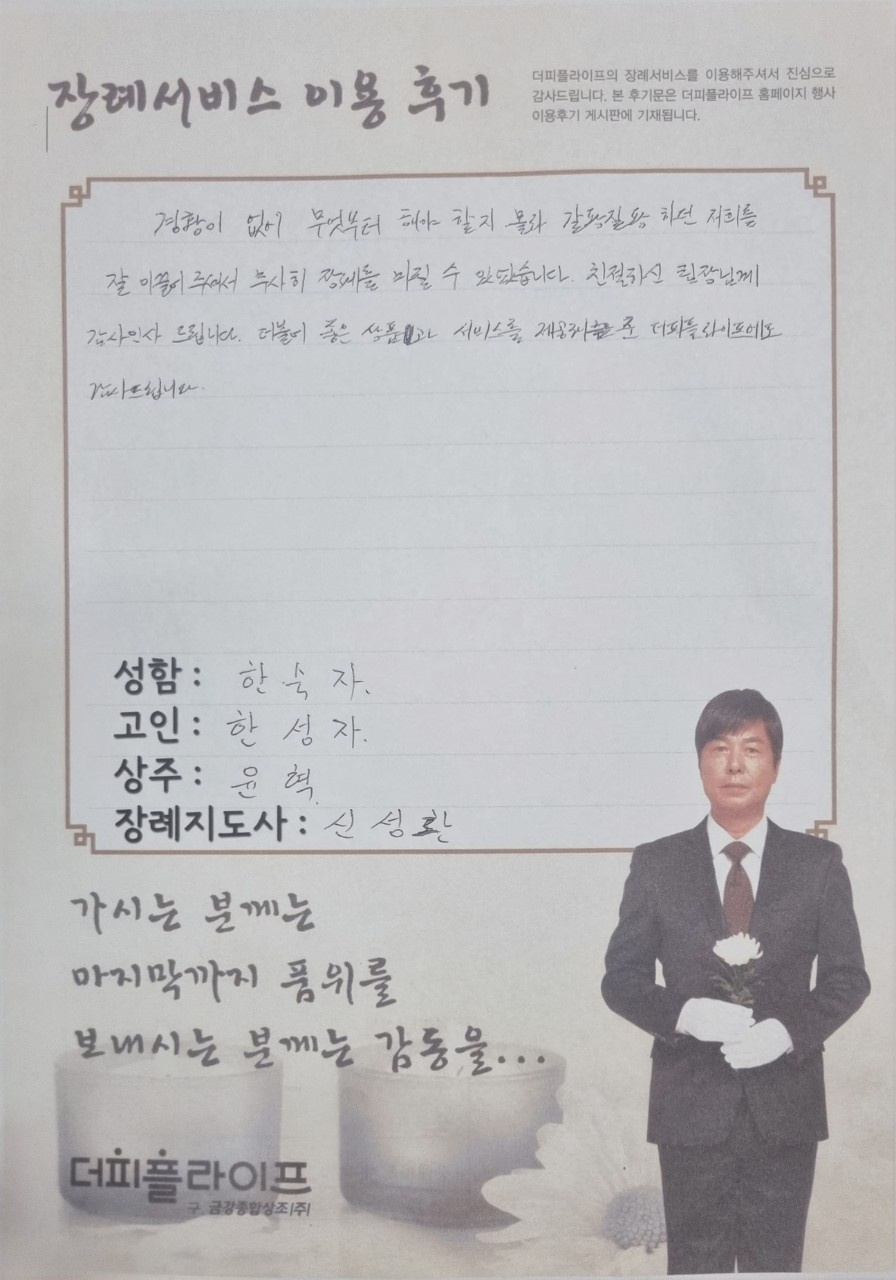 장례서비스 이용 후기
더피플라이프의 장례서비스를 이용해주셔서 진심으로
감사드립니다. 본 후기문은 더피플라이프 홈페이지 행사
이용후기 게시판에 기재됩니다.
경황이 없어 무엇부터 해야 할지 몰라 갈팡질팡 하던 저희를
잘 이끌어 주셔서 무사히 장례를 마칠 수 있었습니다. 친절하신 팀장님께
감사인사 드립니다. 더불어 좋은 상품과 서비스를 제공해 준 더피플라이프에도
감사드립니다.
성함 : 한숙자.
고인 : 한성자.
상주 : 윤혁.
장례지도사 : 신성환
가시는 분께는
마지막까지 품위를
보내시는 분께는 감동을...
더피플라이프
구. 금강종합상조(주)